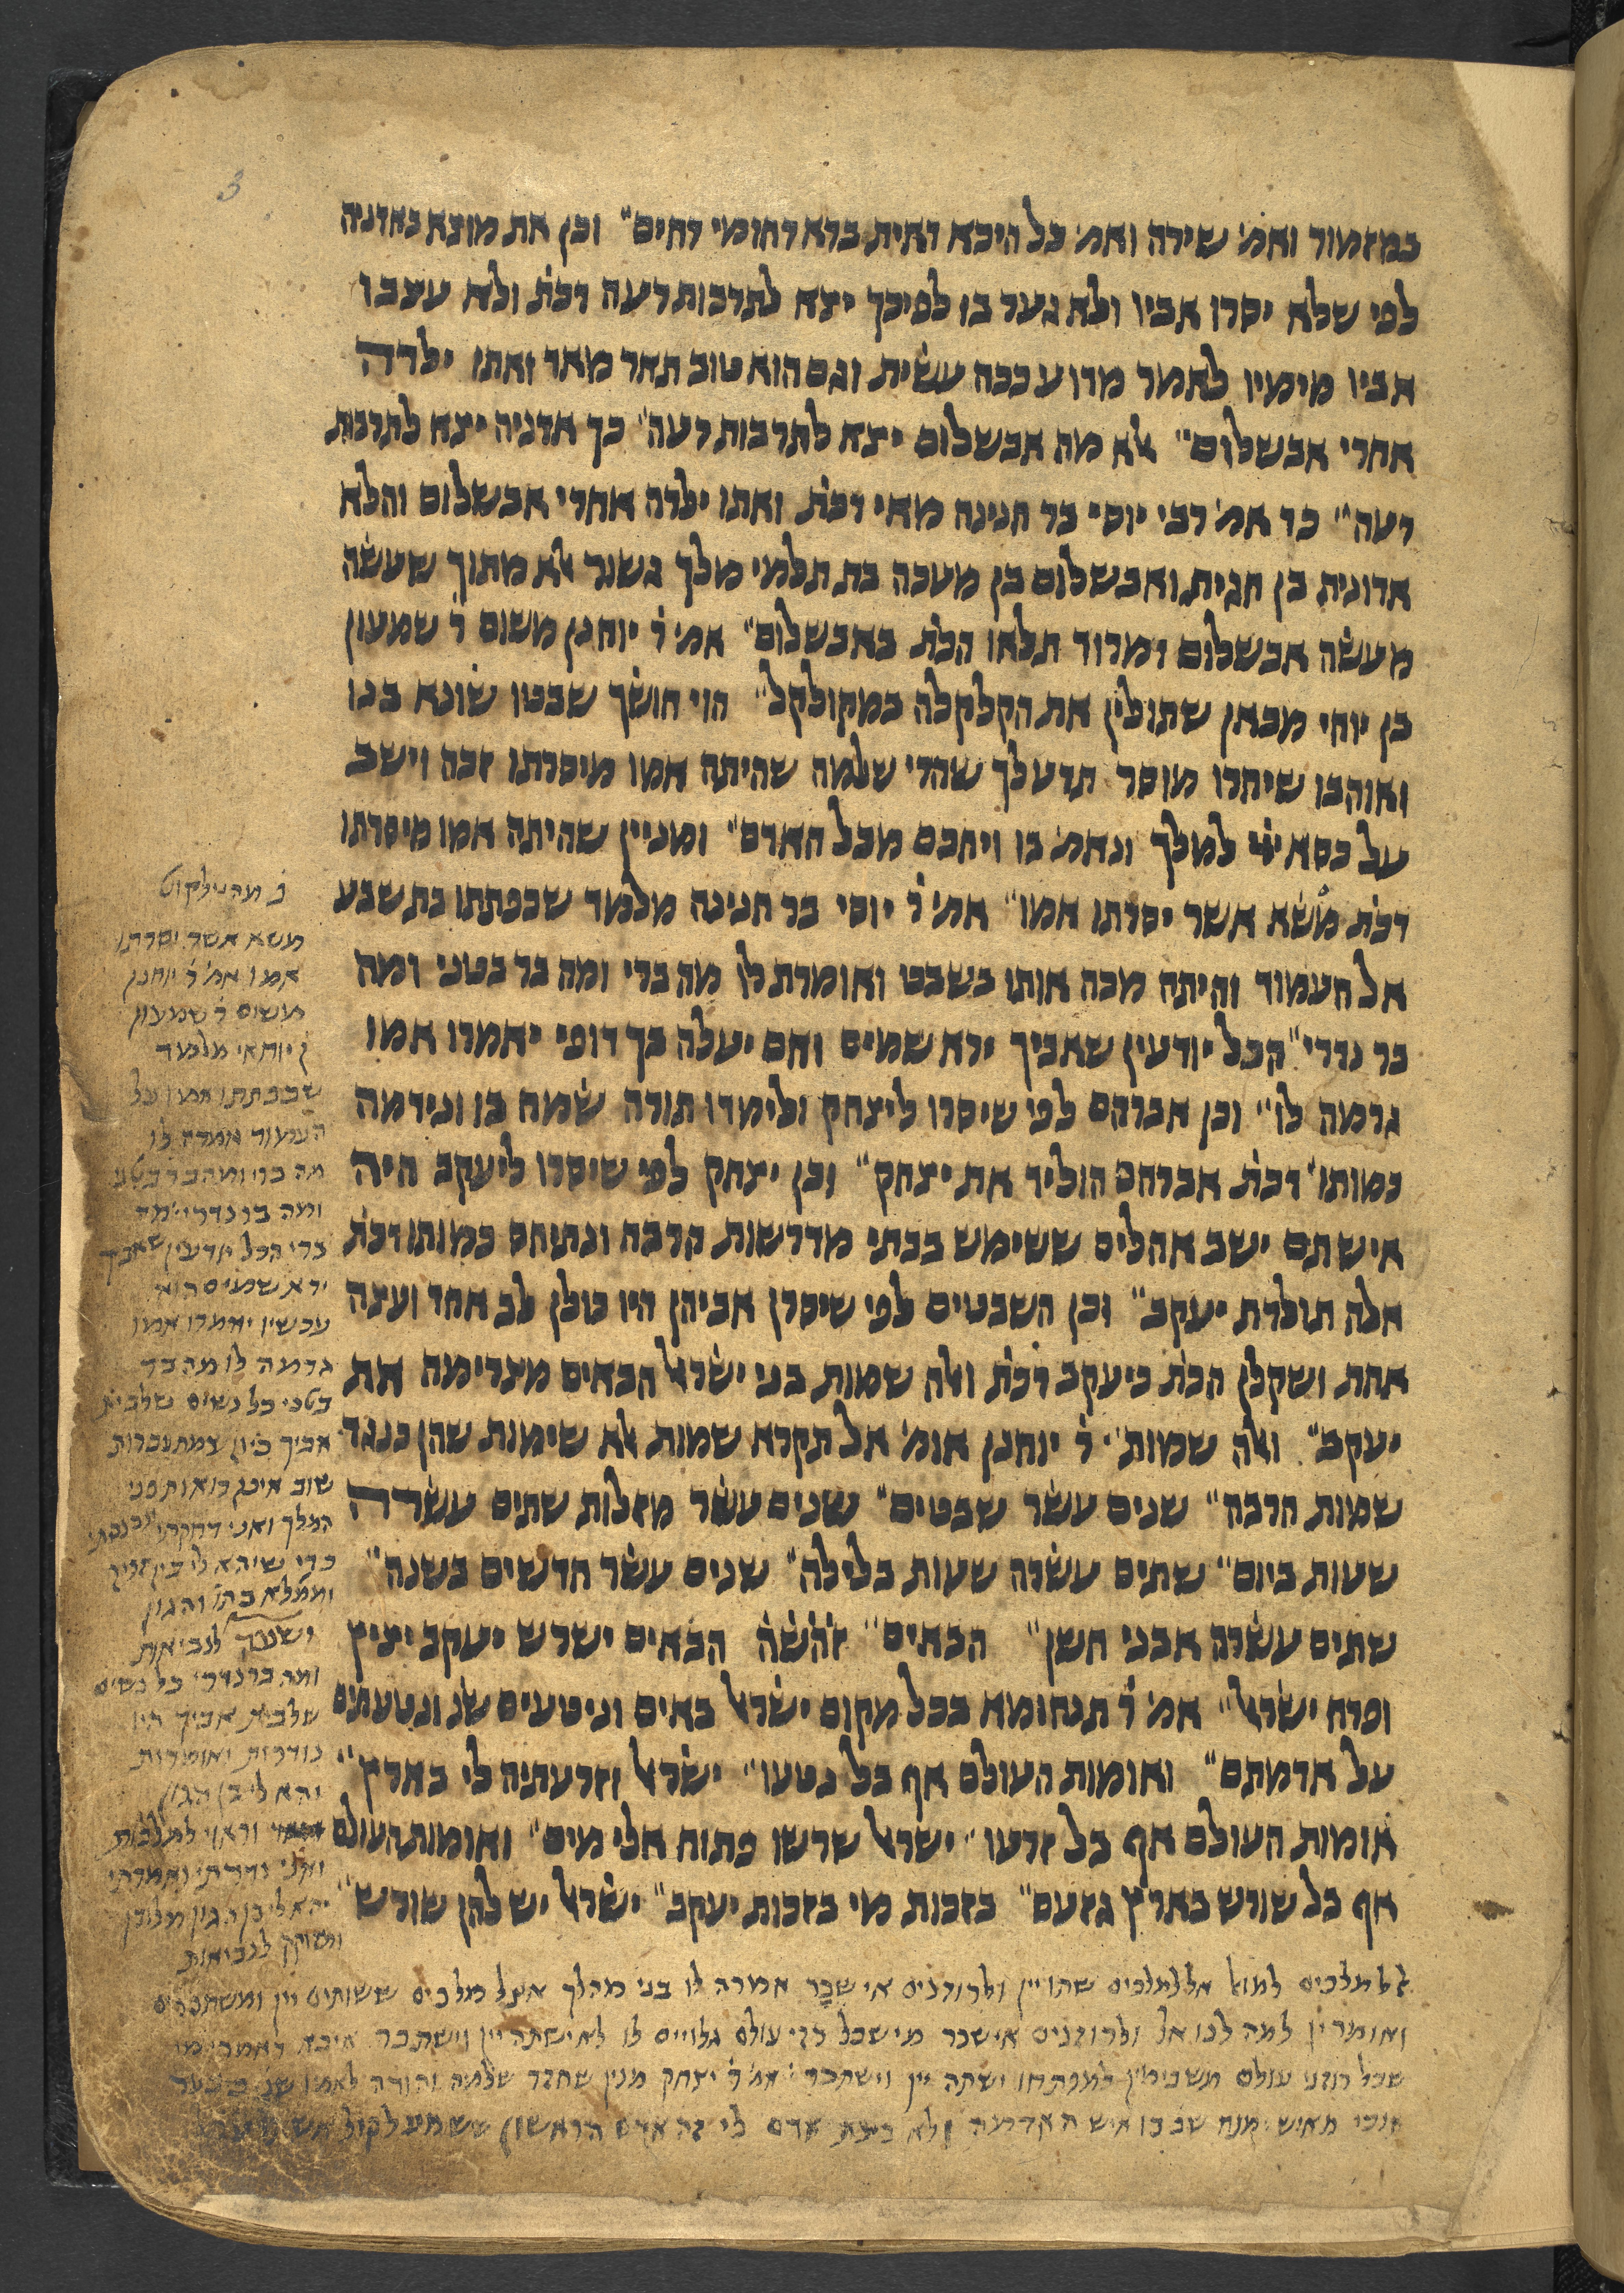 במזמור ואמ׳ שירה ואמ׳ כל היכא דאית ברא רחומי דחים״ וכן את מוצא באדניה
לפי שלא יסרו אביו ולא גער בו לפיכך יצא לתרבות רעה דכת׳ ולא עצבו
אביו מימיו לאמר מדוע ככה עשית וגם הוא טוב תאר מאד ואתו ילדה
אחרי אבשלום״ אלא מה אבשלום יצא לתרבות רעה׳ כך אדניה יצא לתרבות
רעה״ כד אמ׳ רבי יוסי בר חנינה מאי דכת׳ ואתו ילדה אחרי אבשלום והלא
אדונית בן חגית ואבשלום בן מעכה בת תלמי מלך גשור אלא מתוך שעשה
מעשה אבשלום דמרוד תלאו הכת׳ באבשלום״ אמ׳ ר׳ יוחנן משום ר׳ שמעון
בן יוחי מכאן שתולין את הקלקלה במקולקל״ הוי חושך שבטו שונא בנו
ואוהבו שיחרו מוסר תדע לך שהרי שלמה שהיתה אמו מיסרתו זכה וישב
על כסא ייי למלך ונאמ׳ בו ויחכם מכל האדם״ ומניין שהיתה אמו מיסרתו
דכת׳ משא אשר יסרתו אמו״ אמ׳ ר׳ יוסי בר חנינה מלמד שכפתתו בת שבע
אל העמוד והיתה מכה אותו בשבט ואומרת לו מה ברי ומה בר בטני ומה
בר נדרי״ הכל יודעין שאביך ירא שמים ואם יעלה בך דופי יאמרו אמו
גרמה לו״ וכן אברהם לפי שיסרו ליצחק ולימדו תורה שמח בו ונידמה
כמותו׳ דכת׳ אברהם הוליד את יצחק״ וכן יצחק לפי שיסרו ליעקב היה
איש תם ישב אהלים ששימש בבתי מדרשות קרבה ונתיחס כמותו דכת׳
אלה תולדת יעקב״ וכן השבטים לפי שיסרן אביהן היו כולן לב אחד ועצה
אחת ושקלן הכת׳ כיעקב דכת׳ ואלה שמות בני ישראל הבאים מצרימה את
יעקב״ ואלה שמות״ ר׳ יוחנן אומ׳ אל תקרא שמות אלא שימות שהן כנגד
שמות הרבה״ שנים עשר שבטים״ שנים עשר מזלות שתים עשרה
שעות ביום״ שתים עשרה שעות בלילה״ שנים עשר חדשים בשנה״
שתים עשרה אבני חשן״ הבאים״ זהשה הבאים ישרש יעקב יציץ
ופרח ישראל״ אמ׳ ר׳ תנחומא בכל מקום ישראל באים וניטעים שנ׳ ונטעתים
על אדמתם״ ואומות העולם אף בל נטעו״ ישראל וזרעתיה לי בארץ״
אומות העולם אף בל זרעו״ ישראל שרשו פתוח אלי מים״ ואומות העולם
אף בל שורש בארץ גזעם״ בזכות מי בזכות יעקב״ ישראל יש להן שורש״
מהילקוט
משא אשר יסרתו
אמו אמ׳ ר׳ יוחנן
משום ר׳ שמעון
יוחאי מלמד
שכפתתו אמו על
העמוד אמרה לו
מה ברי ומה בר בטני
ומה בר נדרי מה
ברי הכל יודעין שאביך
ירא שמים הוא
עכשיו יאמרו אמו
גרמה לו מה בר
בטני כל נשים שלבית
אביך כיון שמתעברות
שוב אינן רואות פני
המלך ואני דחקתי ונכנסתי
כדי שיהא לי בן זריז
לנביאות
ומה בר נדרי כל נשים
שלבית אביך היו
נודרות ואומרות
יהא לי בן הגון
וראוי למלכות
ואני נדרתי ואמרתי
יהא לי בן הגין
לנביאות
אל למלכים למואל אל למלכים שתו יין ולרוזנים אי שכר אמרה לו בני מה לך אצל מלכים ששותים יין ומשתכרים
ואומרין למה לנו אל ולרוזנים אי שכר מי שכל רזי עולם גלויים לו לא ישתה יין וישתכר איכא דאמרי מי
שכל רוזני עולם משכימין לפתחו ישתה יין וישתכר אמ׳ ר׳ יצחק מנין שחזר שלמה והודה לאמו שנ׳ כי בער
אנכי מאיש שבנו איש האדמה ולא בינת אדם לי זה אדם הראשון ששמע לקול